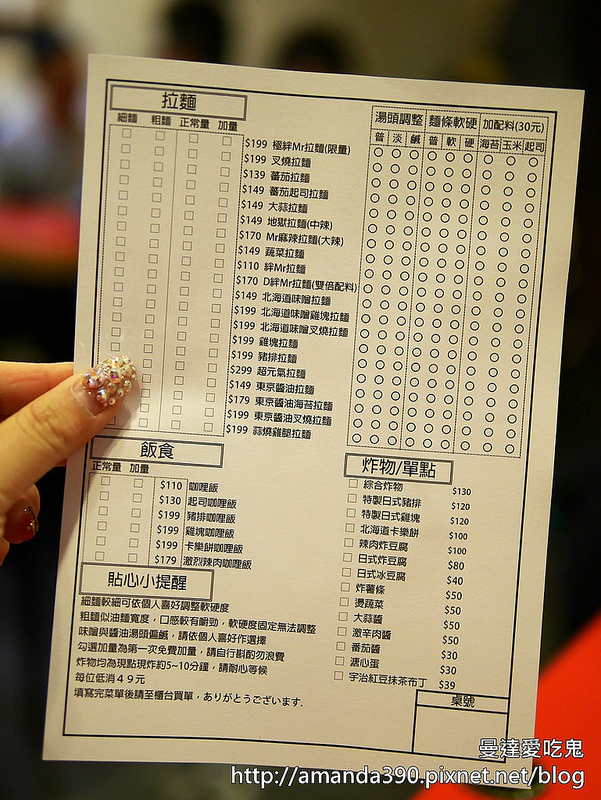 拉麵
細麵 粗麵 正常量 加量
湯頭調整 麵條軟硬 加配料(30元)
普 淡 鹹 普 軟 硬 海苔 玉米 起司
$199 極絆Mr拉麵(限量)
$199 叉燒拉麵
$139 蕃茄拉麵
$149 蕃茄起司拉麵
$149 大蒜拉麵
$149 地獄拉麵(中辣)
$170 Mr麻辣拉麵(大辣)
$149 蔬菜拉麵
$110 絆Mr拉麵
$170 D絆Mr拉麵(雙倍配料)
$149 北海道味噌拉麵
$199 北海道味噌雞塊拉麵
$199 北海道味噌叉燒拉麵
$199 雞塊拉麵
$199 豬排拉麵
$299 超元氣拉麵
$149 東京醬油拉麵
$179 東京醬油海苔拉麵
$199 東京醬油叉燒拉麵
$199 蒜燒雞腿拉麵
飯食
正常量 加量
$110 咖哩飯
$130 起司咖哩飯
$199 豬排咖哩飯
$199 雞塊咖哩飯
$199 卡樂餅咖哩飯
$179 激烈辣肉咖哩飯
炸物/單點
綜合炸物 $130
特製日式豬排 $120
特製日式雞塊 $120
北海道卡樂餅 $100
辣肉炸豆腐 $100
日式炸豆腐 $80
日式冰豆腐 $40
炸薯條 $50
燙蔬菜 $50
大蒜醬 $50
激辛肉醬 $50
蕃茄醬 $30
溏心蛋 $30
宇治紅豆抹茶布丁 $39
貼心小提醒
細麵較細可依個人喜好調整軟硬度
粗麵似油麵寬度，口感較有嚼勁，軟硬度固定無法調整
味噌與醬油湯頭偏鹹，請依個人喜好作選擇
勾選加量為第一次免費加量，請自行斟酌勿浪費
炸物均為現點現炸約5~10分鐘，請耐心等候
每位低消４９元
填寫完菜單後請至櫃台買單，ありがとうございます.
桌號
曼達愛吃鬼
http://amanda390.pixnet.net/blog